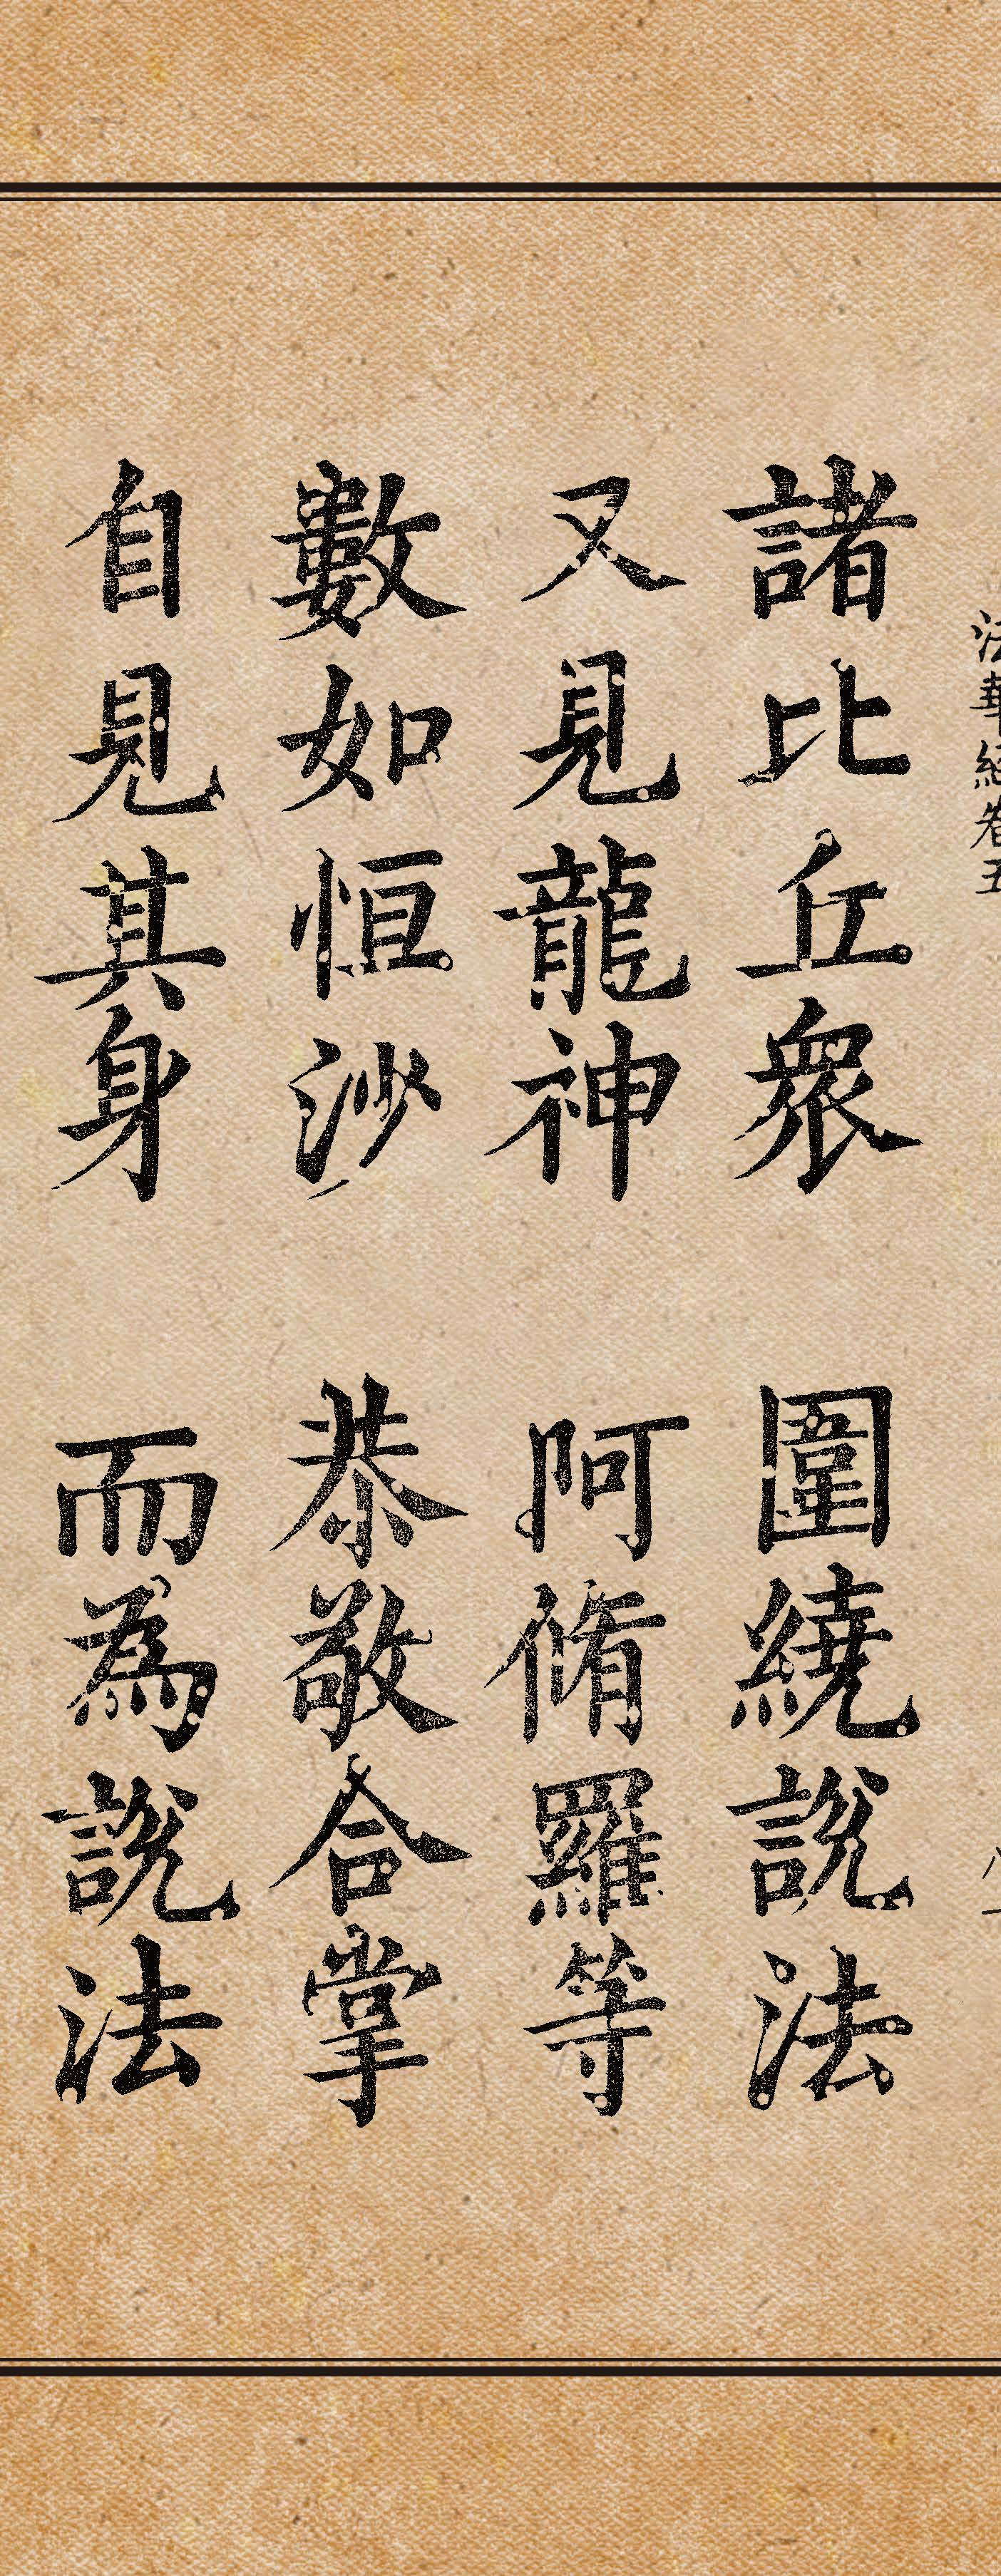 法華經卷五
諸比丘眾 圍繞說法
又見龍神 阿脩羅等
數如恒沙 恭敬合掌
自見其身 而為說法